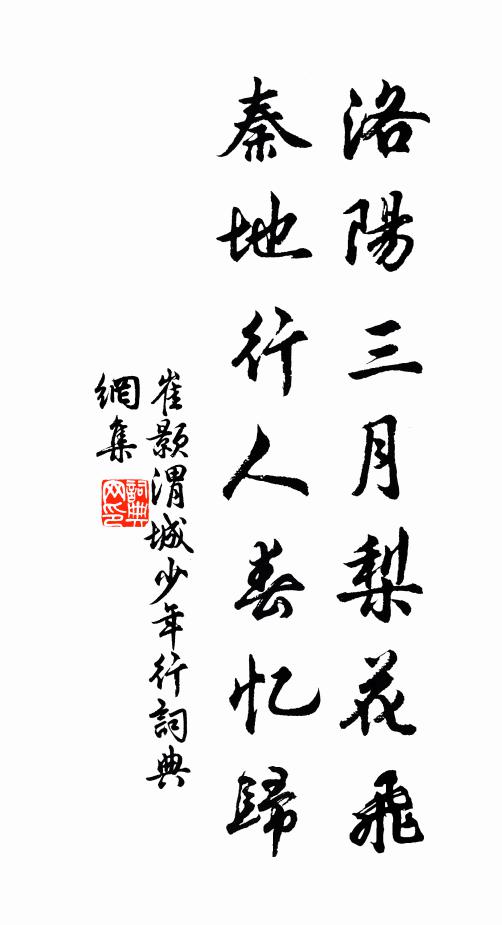 洛陽三月梨花飛
秦地行人春忆歸
崔顥渭城少年行詞典
網集
詞典網印